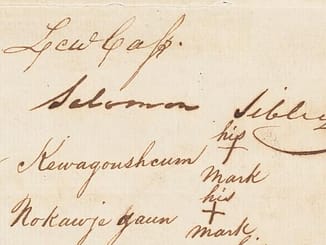 Lew Cass.
Solomon Sibley
his
Kewagousheum + Mark
his
Nokawjegaun + Mark.